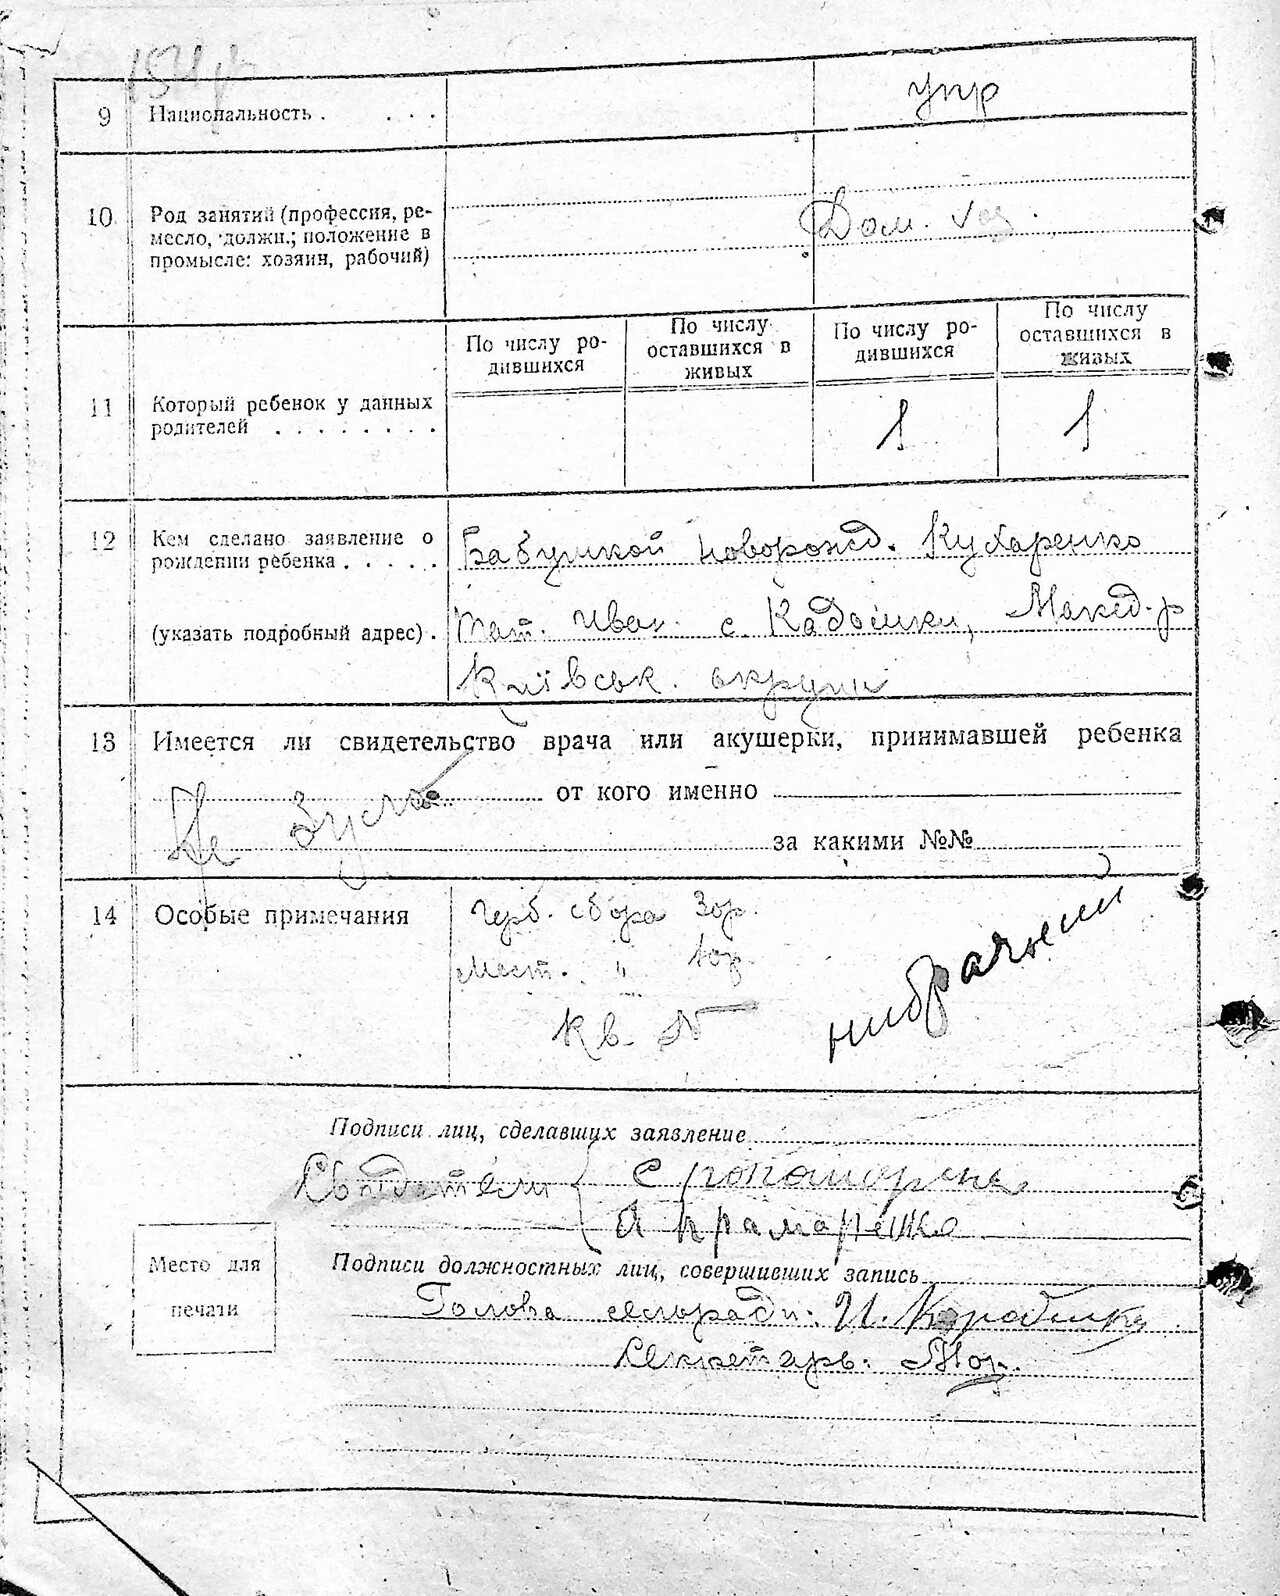 9 Национальность . . . . укр
10 Род занятий (профессия, ре-
месло, должн.; положение в
промысле: хозяин, рабочий)
Дом.
По числу ро-
дившихся
По числу
оставшихся в
живых
По числу ро-
дившихся
По числу
оставшихся в
живых
11 Который ребенок у данных
родителей . . . . . . . .
1 1
12 Кем сделано заявление о
рождении ребенка . . . . .
(указать подробный адрес) .
Бабушкой новорожд. Кухаренко
Тат. Иван. с. Кадомки, Макед. р
Київськ. округи
13 Имеется ли свидетельство врача или акушерки, принимавшей ребенка
от кого именно
Не
за какими №№
14 Особые примечания
Герб. сбора 3ор.
Мест. " 1ор.
Кв. №
нибрачний
Подписи лиц, сделавших заявление
Свидетели
А Крамаренко
Место для
печати
Подписи должностных лиц, совершивших запись
Голова сельради: И.
Секретарь: